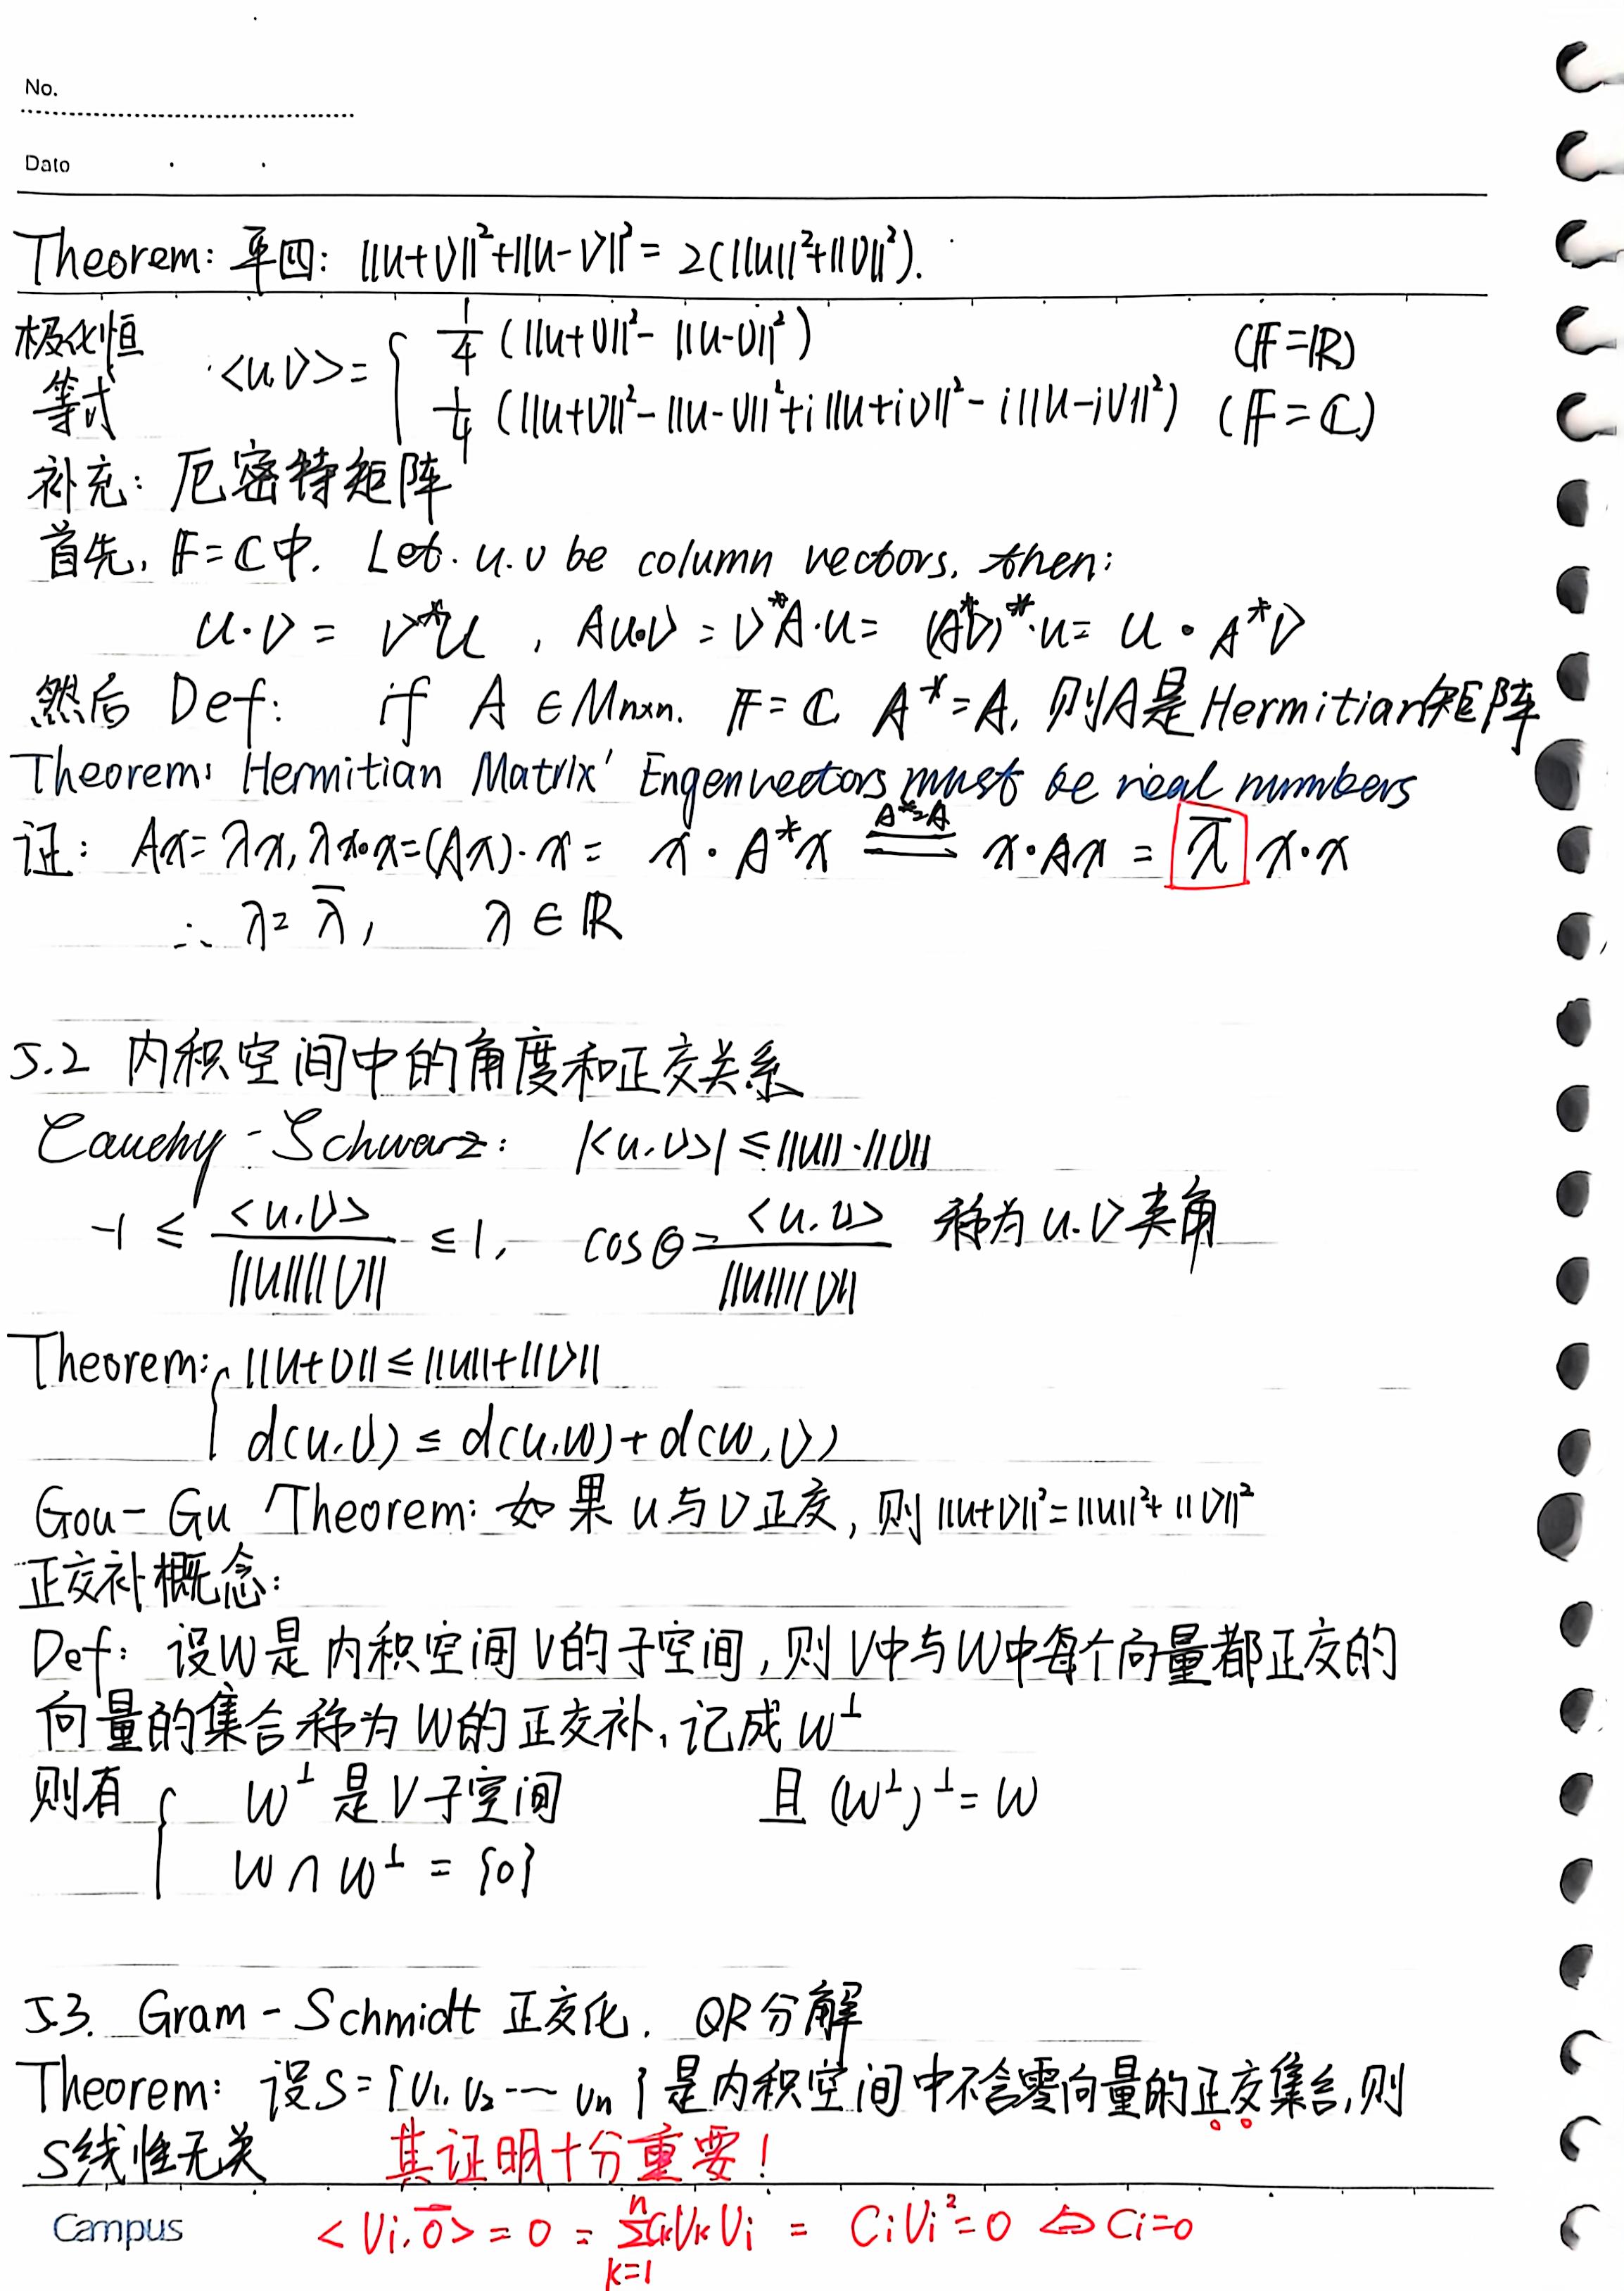 No.
Date
Theorem: 平四: ||u+v||²+||u-v||²= 2(||u||²+||v||²).
极化恒等式 <u,v>= { 1/4 (||u+v||²- ||u-v||²) (F=R)
1/4 (||u+v||²- ||u-v||²+i||u+iv||²- i||u-iv||²) (F=C)
补充: 厄密特矩阵
首先, F=C中. Let. u.v be column vectors, then:
u·v = v*u , Au·v = v*A·u= (A*v)*·u= u·A*v
然后 Def: if A ∈Mnxn. F=C A*=A, 则A是Hermitian矩阵
Theorem: Hermitian Matrix' Engenvectors must be real numbers
证: Ax=λx, λx·x=(Ax)·x= x·A*x =(A*=A)= x·Ax = λ̄ x·x
∴ λ= λ̄, λ∈R
5.2 内积空间中的角度和正交关系
Cauchy-Schwarz: |<u,v>| ≤||u||·||v||
-1 ≤ <u,v>/||u||||v|| ≤1, cosθ= <u,v>/||u||||v|| 称为u.v夹角
Theorem: { ||u+v||≤||u||+||v||
d(u,v) ≤ d(u,w)+d(w,v)
Gou-Gu Theorem: 如果u与v正交, 则||u+v||²=||u||²+||v||²
正交补概念:
Def: 设W是内积空间V的子空间, 则V中与W中每个向量都正交的
向量的集合称为W的正交补, 记成W⊥
则有 { W⊥是V子空间 且(W⊥)⊥=W
W∩W⊥ = {0}
5.3. Gram-Schmidt正交化. QR分解
Theorem: 设S={v₁,v₂…vn}是内积空间中不含零向量的正交集合,则
S线性无关 其证明十分重要!
Campus <vi,0⃗>=0= Σ(k=1→n) CkVkVi = CiVi²=0 ⇔ Ci=0